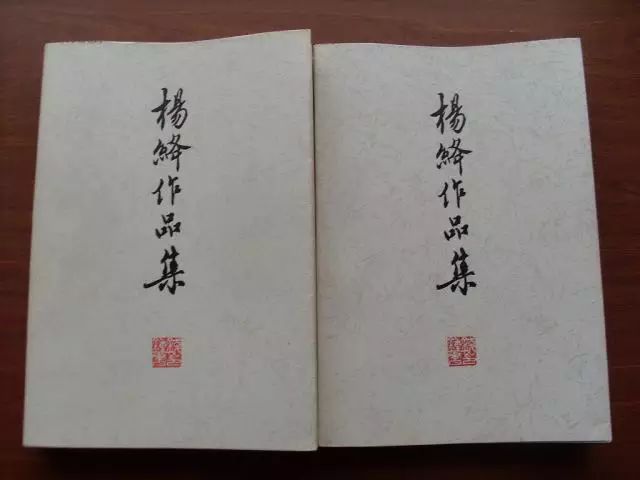 楊絳作品集
楊絳作品集